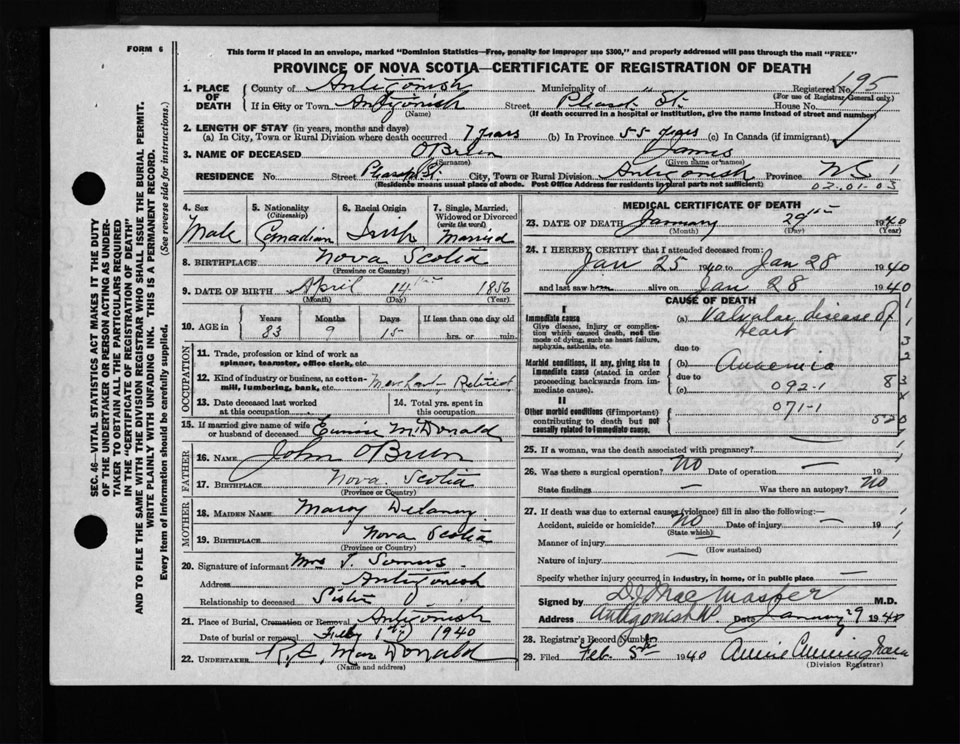 FORM 6
This form if placed in an envelope, marked "Dominion Statistics—Free, penalty for improper use $300," and properly addressed will pass through the mail "FREE"
PROVINCE OF NOVA SCOTIA—CERTIFICATE OF REGISTRATION OF DEATH
1. PLACE OF DEATH County of Antigonish Municipality of " Registered No. 195
(For use of Registrar General only)
If in City or Town Antigonish Street Pleasant St. House No.
(Name) (If death occurred in a hospital or institution, give the name instead of street and number)
2. LENGTH OF STAY (in years, months and days)
(a) In City, Town or Rural Division where death occurred 7 years (b) In Province 55 years (c) In Canada (if immigrant)
3. NAME OF DECEASED O'Brien James
(Surname) (Given name or names)
RESIDENCE No. Street Pleasant St. City, Town or Rural Division Antigonish Province NS
(Residence means usual place of abode. Post Office Address for residents in rural parts not sufficient) 02.01-03
4. Sex 5. Nationality (Citizenship) 6. Racial Origin 7. Single, Married, Widowed or Divorced (write the word)
Male Canadian Irish Married
8. BIRTHPLACE Nova Scotia
(Province or Country)
9. DATE OF BIRTH April 14th 1856
(Month) (Day) (Year)
10. AGE in Years Months Days If less than one day old
83 9 15 hrs. or min.
OCCUPATION
11. Trade, profession or kind of work as spinner, teamster, office clerk, etc.
12. Kind of industry or business, as cotton-mill, lumbering, bank, etc. Merchant Retired
13. Date deceased last worked at this occupation 14. Total yrs. spent in this occupation
15. If married give name of wife or husband of deceased Eunice McDonald
FATHER
16. NAME John O'Brien
17. BIRTHPLACE Nova Scotia
(Province or Country)
MOTHER
18. MAIDEN NAME Mary Delaney
19. BIRTHPLACE Nova Scotia
(Province or Country)
20. Signature of informant Mrs J. Somers
Address Antigonish
Relationship to deceased Sister
21. Place of Burial, Cremation or Removal Antigonish
Date of burial or removal Feby 1st 1940
22. UNDERTAKER R.A. MacDonald
(Name and address)
MEDICAL CERTIFICATE OF DEATH
23. DATE OF DEATH January 29th 1940
(Month) (Day) (Year)
24. I HEREBY CERTIFY that I attended deceased from:
Jan 25 1940 to Jan 28 1940
and last saw him alive on Jan 28 1940
CAUSE OF DEATH
I
Immediate cause (a) Valvular disease of Heart
Give disease, injury or complication which caused death, not the mode of dying, such as heart failure, asphyxia, asthenia, etc.
due to
Morbid conditions, if any, giving rise to immediate cause (stated in order proceeding backwards from immediate cause) Anaemia
due to
(c) 092-1
II
071-1
Other morbid conditions (if important) contributing to death but not causally related to immediate cause.
25. If a woman, was the death associated with pregnancy?
26. Was there a surgical operation? No Date of operation — 19
State findings — Was there an autopsy? No
27. If death was due to external causes (violence) fill in also the following:—
Accident, suicide or homicide? No Date of injury — 19
(State which)
Manner of injury
(How sustained)
Nature of injury —
Specify whether injury occurred in industry, in home, or in public place —
Signed by D J MacMaster M.D.
Address Antigonish N. Date January 29 1940
28. Registrar's Record Number
29. Filed Feb. 5th 1940 Annie Cunningham
(Division Registrar)
SEC. 46—VITAL STATISTICS ACT MAKES IT THE DUTY
OF THE UNDERTAKER OR PERSON ACTING AS UNDER-
TAKER TO OBTAIN ALL THE PARTICULARS REQUIRED
IN THE "CERTIFICATE OF REGISTRATION OF DEATH"
AND TO FILE THE SAME WITH THE DIVISION REGISTRAR WHO SHALL ISSUE THE BURIAL PERMIT.
WRITE PLAINLY WITH UNFADING INK. THIS IS A PERMANENT RECORD.
Every item of information should be carefully supplied. (See reverse side for instructions.)